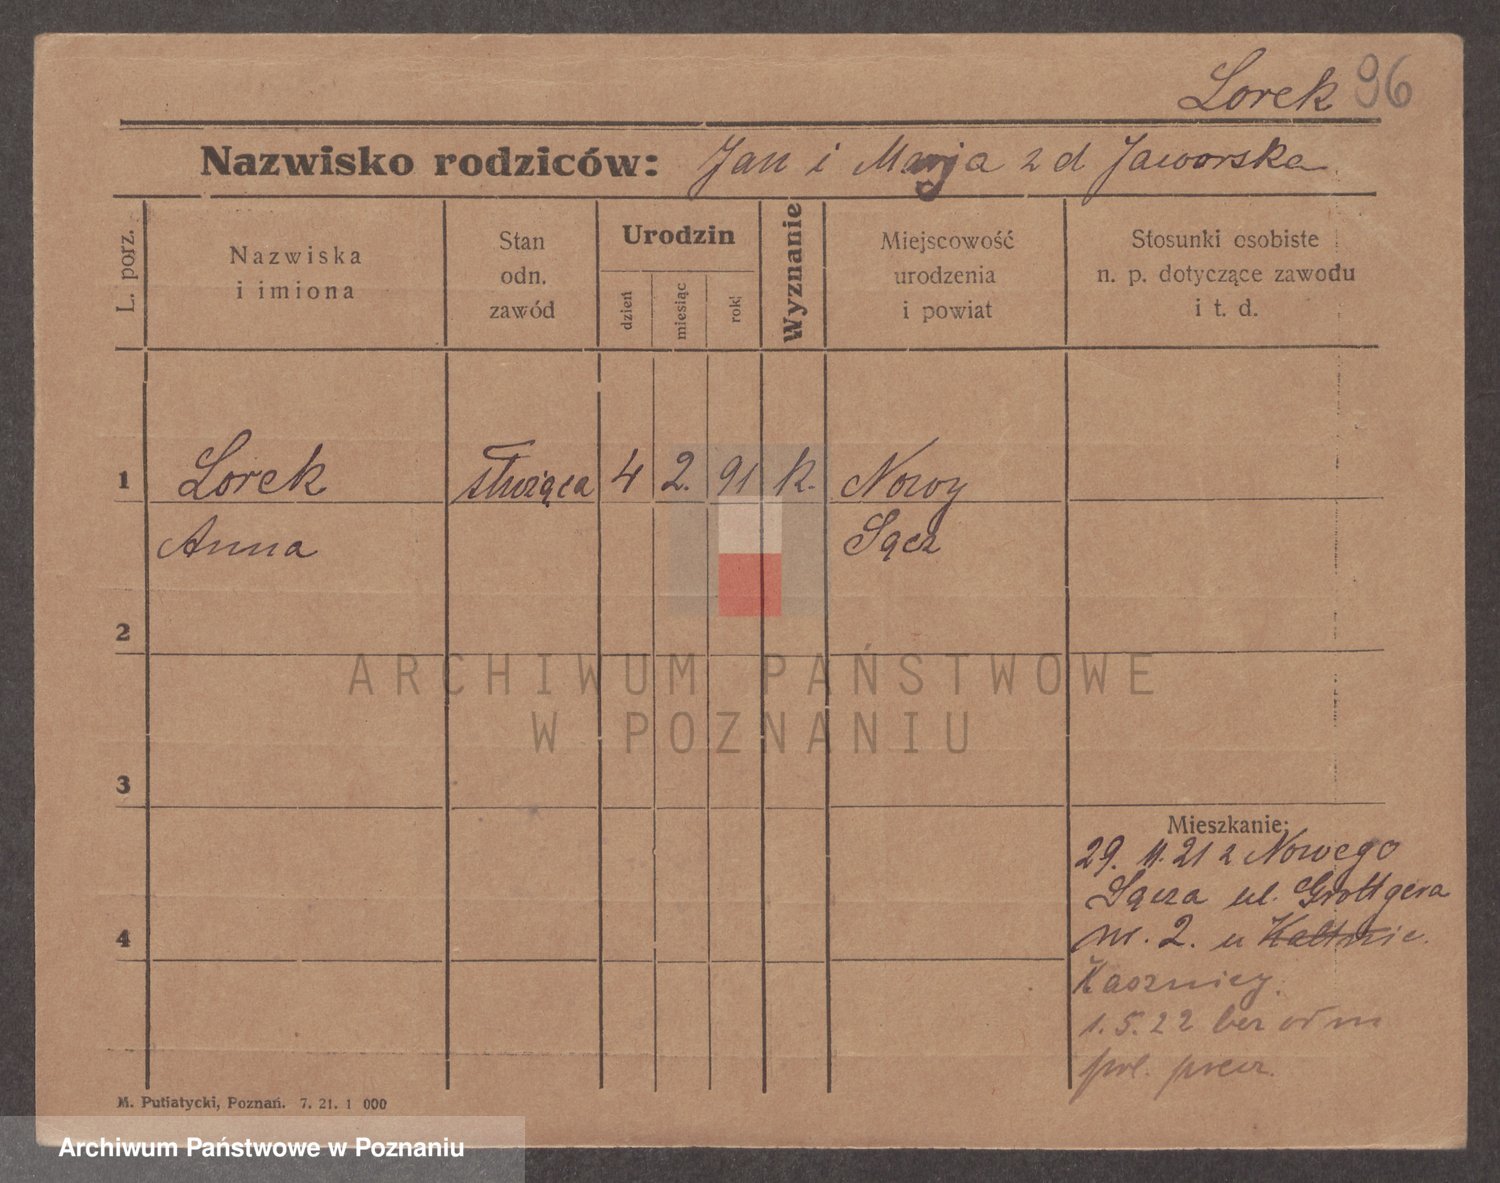 Lorek 96
Nazwisko rodziców: Jan i Marja z d Jaworska
L. porz.
Nazwiska
i imiona
Stan
odn.
zawód
Urodzin
dzień
miesiąc
rok
Wyznanie
Miejscowość
urodzenia
i powiat
Stosunki osobiste
n. p. dotyczące zawodu
i t. d.
1 Lorek służąca 4 2. 91 k. Nowy
Anna Sącz
2
3
Mieszkanie:
29. 11. 21 z Nowego
Sącza ul. Grottgera
nr. 2. u
4
1. 5. 22 bez odm
pol.
M. Putiatycki, Poznań. 7. 21. 1 000
ARCHIWUM PAŃSTWOWE
W POZNANIU
Archiwum Państwowe w Poznaniu